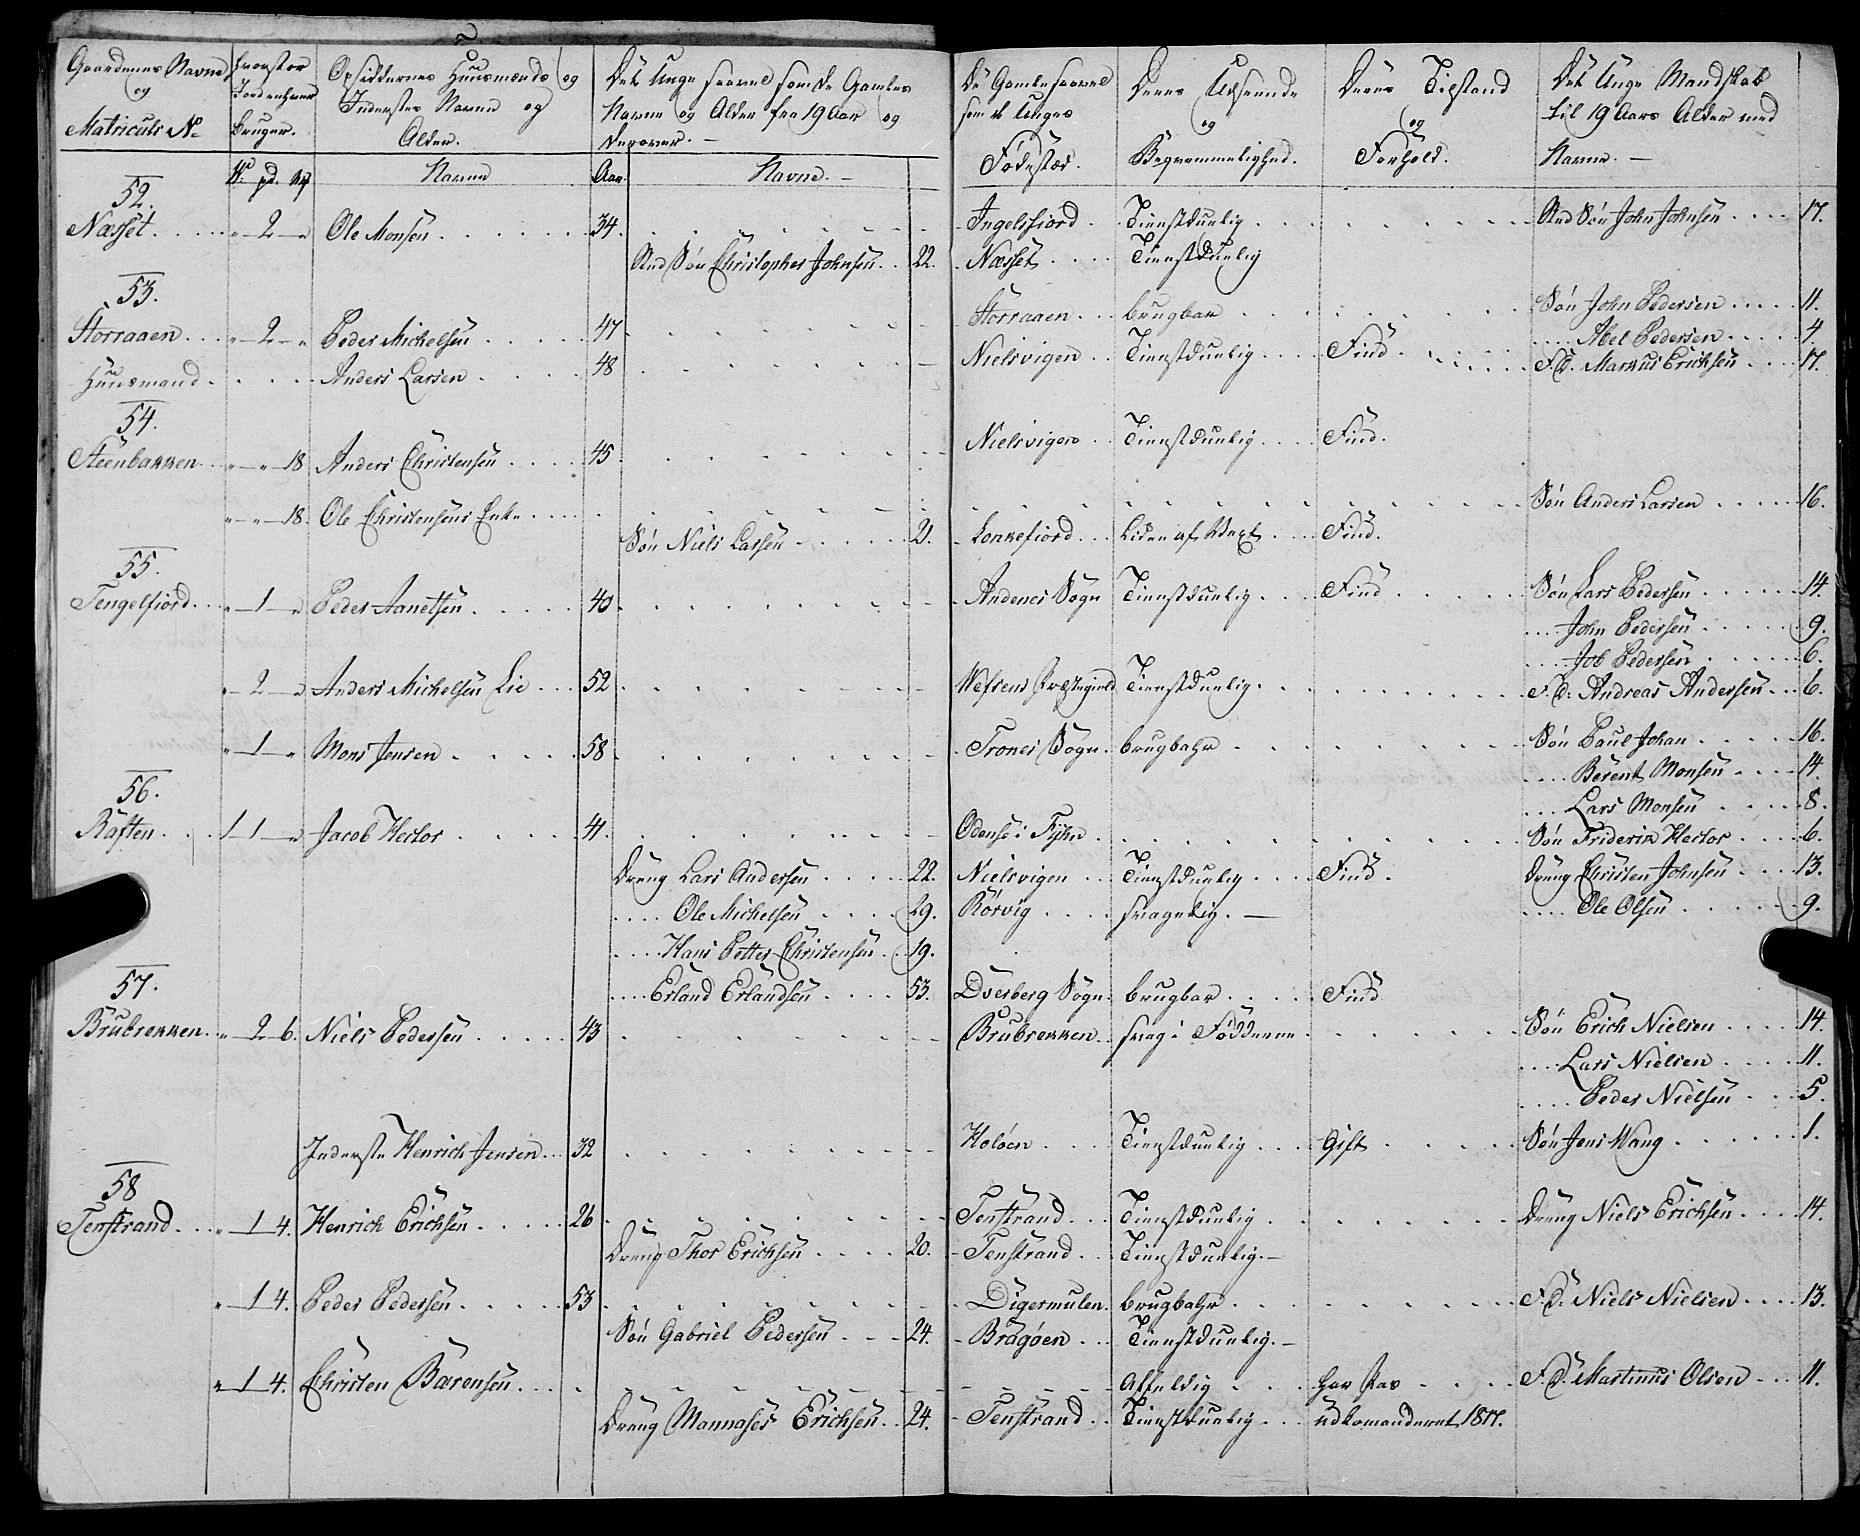 Gaardenes Navne og Matriculs No
Hvorstor Jord enhver bruger.
Opsiddernes Huusmænds og Inderstes Navne og Alder.
Det Unge saavel som de Gamles Navne og Alder fra 19 Aar og derover. —
De Gamle saavel som de Unges Fødested.
Deres Udseende og Beqvemmelighed.
Deres Tilstand og Forhold.
Det Unge Mandskab til 19 Aars Alder med Navne. —
W. pd. mk Navne Aar. Navne. —
52.
Næsset . . . " 2 " Ole Monsen . . . 34 . . . Ingelsfiord . Tienstduelig . . . Sted Søn John Johnsen . . . 17.
Sted Søn Christopher Johnsen . . 22. Næsset . . . Tienstduelig
53.
Storraaen . . . " 2 " Peder Michelsen . . . 47 . . . Storraaen . . . brugbar . . . Søn John Pedersen . . . 11.
. . . Abel Pedersen . . . 4.
Huusmand . . . Anders Larsen . . . 48 . . . Nielsvigen . . Tienstduelig . . . Find . . . F. d. Markus Erichsen . . . 17.
54.
Steenbakken . . " " 18 Anders Christensen . . . 45 . . . Nielsvigen . . Tienstduelig . . . Find.
" " 18. Ole Christensens Enke . . . Søn Anders Larsen . . . 16.
Søn Niels Larsen . . . 21. Lonkefiord . . . Liden af Vext . . . Find.
55.
Tengelfiord . . . " 1 " Peder Aanetsen . . . 40 . . . Andenes Sogn Tienstduelig . . . Find . . . Søn Lars Pedersen . . . 14.
. . . John Pedersen . . . 9.
. . . Job Pedersen . . . 6.
" 2 " Anders Michelsen Lie . . . 52 . . . Wefsens Præstegield Tienstduelig . . . F. d. Andreas Andersen . . 6.
" 1 " Mons Jensen . . . 58 . . . Trones Sogn . brugbahr . . . Søn Paul Johan . . . 16.
. . . Berent Monsen . . . 14.
56.
. . . Lars Monsen . . . 8.
Raften . . . 1 1 " Jacob Hector . . . 41. . . . Odense i Fyhn . . . Søn Friderik Hector . . . 6.
Dreng Lars Andersen . . . 22. Nielsvigen . . Tienstduelig . . . Find. Dreng Christen Johnsen . . . 13.
. . . Ole Michelsen . . . 29. Rørvig . . . svagelig. — . . . Ole Olsen . . . 9.
. . . Hans Petter Christensen . . 19.
57.
. . . Erland Erlandsen . . . 53. Dverberg Sogn. brugbar . . . Find
Brubrekken . . " 2 6. Niels Pedersen . . . 43 . . . Brubrekken . . svag i Fødderne . . . Søn Erich Nielsen . . . 14.
. . . Lars Nielsen . . . 11.
. . . Peder Nielsen . . . 5.
Inderste Henrich Jensen . . 32 . . . Holøen . . . Tienstduelig . . . Gift . . . Søn Jens Wang . . . 1.
58
Tenstrand . . . " 1 4. Henrich Erichsen . . . 26 . . . Tenstrand . . . Tienstduelig . . . Dreng Niels Erichsen . . . 14.
Dreng Thor Erichsen . . . 20. Tenstrand . . . Tienstduelig. —
" 1 4. Peder Pedersen . . . 53 . . . Digermulen . brugbahr . . . F. d. Niels Nielsen . . . 13.
Søn Gabriel Pedersen . . . 24. Bragøen . . . Tienstduelig. —
" 1 4. Christen Bærensen . . . Affeldig . . . har Pas . . . F. d. Martinus Olsen . . . 11.
Dreng Mannases Erichsen . . 24. Tenstrand . . Tienstduelig . . . udkomanderet 1817.